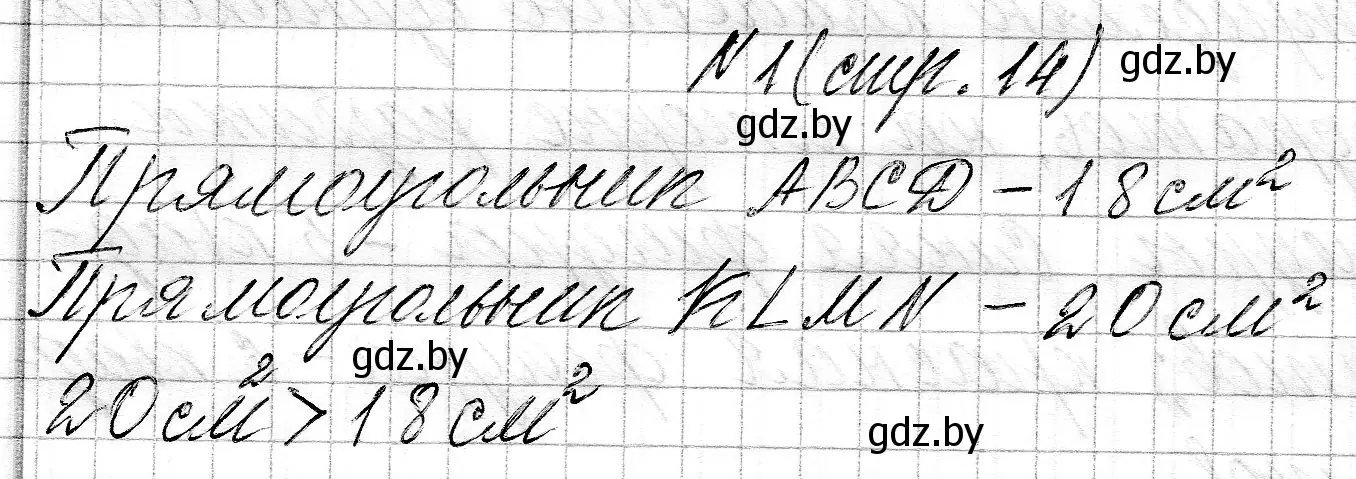 N 1 (стр. 14) gdz.by
gdz.by
Прямоугольник ABCD - 18 см²
Прямоугольник KLMN - 20 см²
gdz.by
20 см² > 18 см²
gdz.by